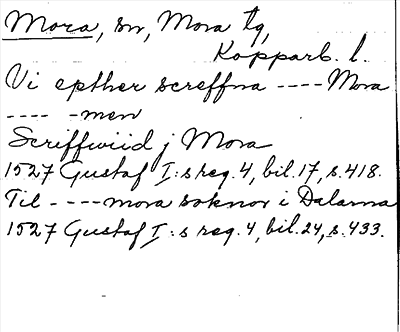 Mora, sn, Mora tg,
Kopparb. l.
Vi epther screffna ---- Mora
---- -men
Scriffwiid j Mora
1527 Gustaf I:s reg. 4, bil. 17, s. 418.
Til - ----mora soknor i Dalarna
1527 Gustaf I:s reg. 4, bil. 24, s. 433.